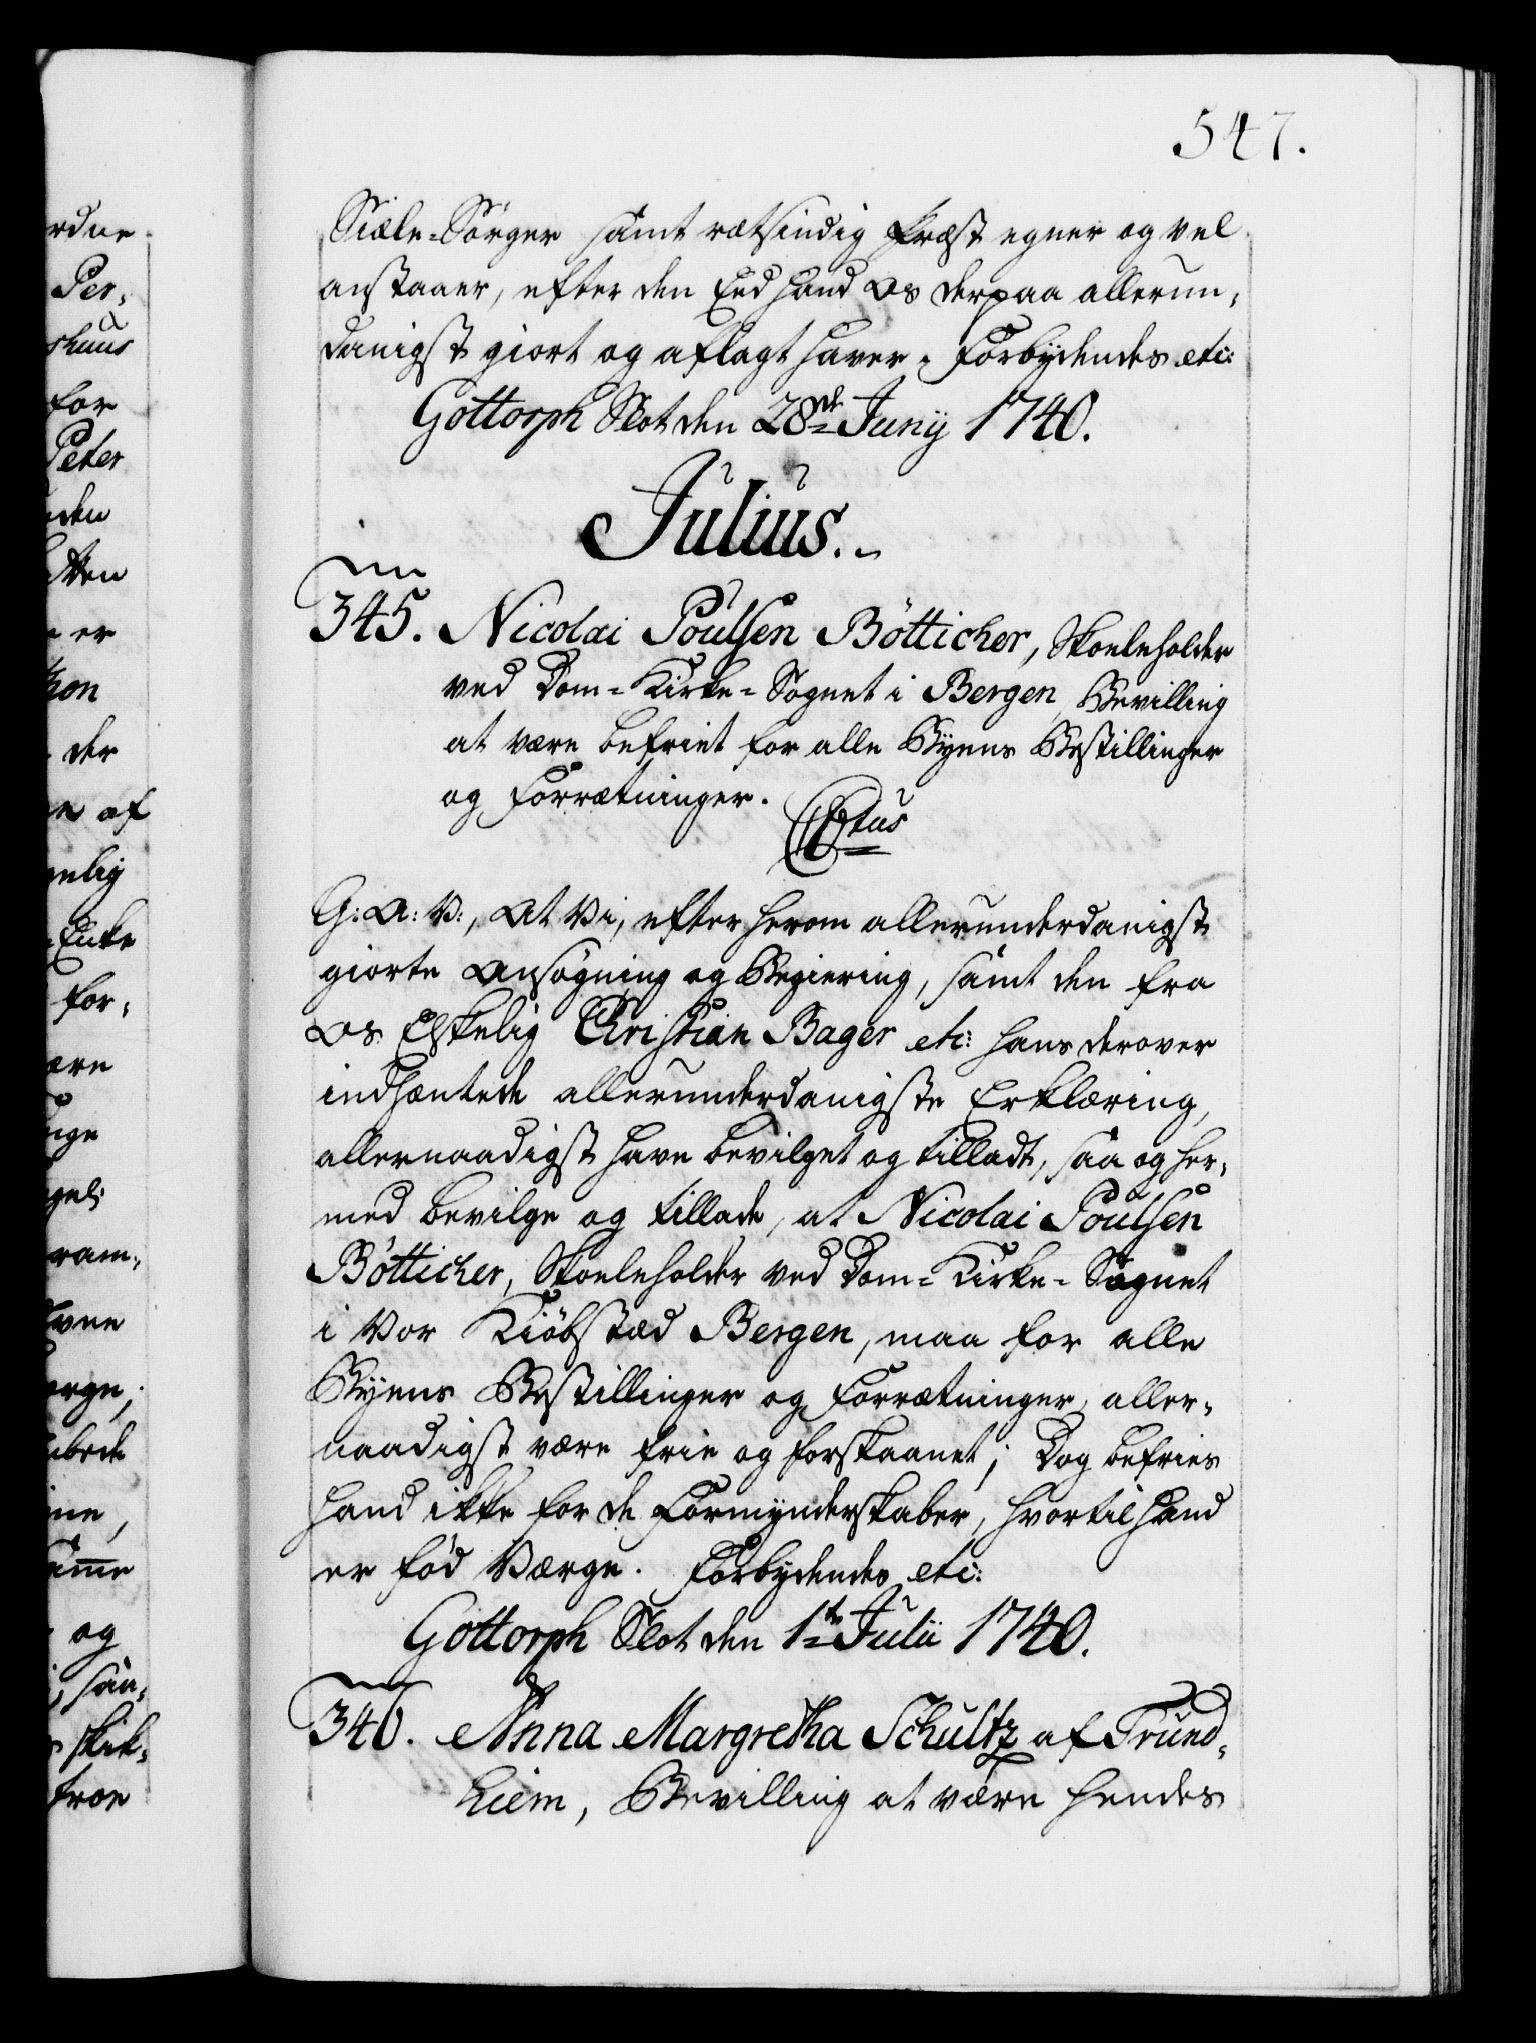 547.
Siæle-Sörger samt rætsindig Præst egner og vel
anstaaer, efter den Eed hand os derpaa allerun-
danigst giort og aflagt haver. Forbydendes etc:
Gottorph Slot den 28de Junij 1740.
Julius.
345. Nicolai Poulsen Bötticher, Skoeleholder
ved Dom-Kirke-Sognet i Bergen, Bevilling
at være befriet for alle Byens Bestillinger
og Forrætninger.
C6tus
G: A: V:, At Vi, efter herom allerunderdanigst
giorte Ansøgning og Begiering, samt den fra
Os Elskelig Christian Bager etc: hans derover
indhæntede allerunderdanigste Erklæring,
allernaadigst have bevilget og tilladt, saa og her-
med bevilge og tillade, at Nicolai Poulsen
Bötticher, Skoeleholder ved Dom-Kirke-Sognet
i Vor Kiöbstæd Bergen, maa for alle
Byens Bestillinger og Forrætninger, aller-
naadigst være frie og forskaanet; Dog befries
hand ikke for de Formynderskaber, hvortil hand
er fød Værge. Forbydendes etc:
Gottorph Slot den 1te Julii 1740.
346. Anna Margretha Schultz af Trund-
hiem, Bevilling at være hendes
rdne
Per-
shuus
for
Peter
den
er
der
af
Enke
for-
ram-
og
saa-